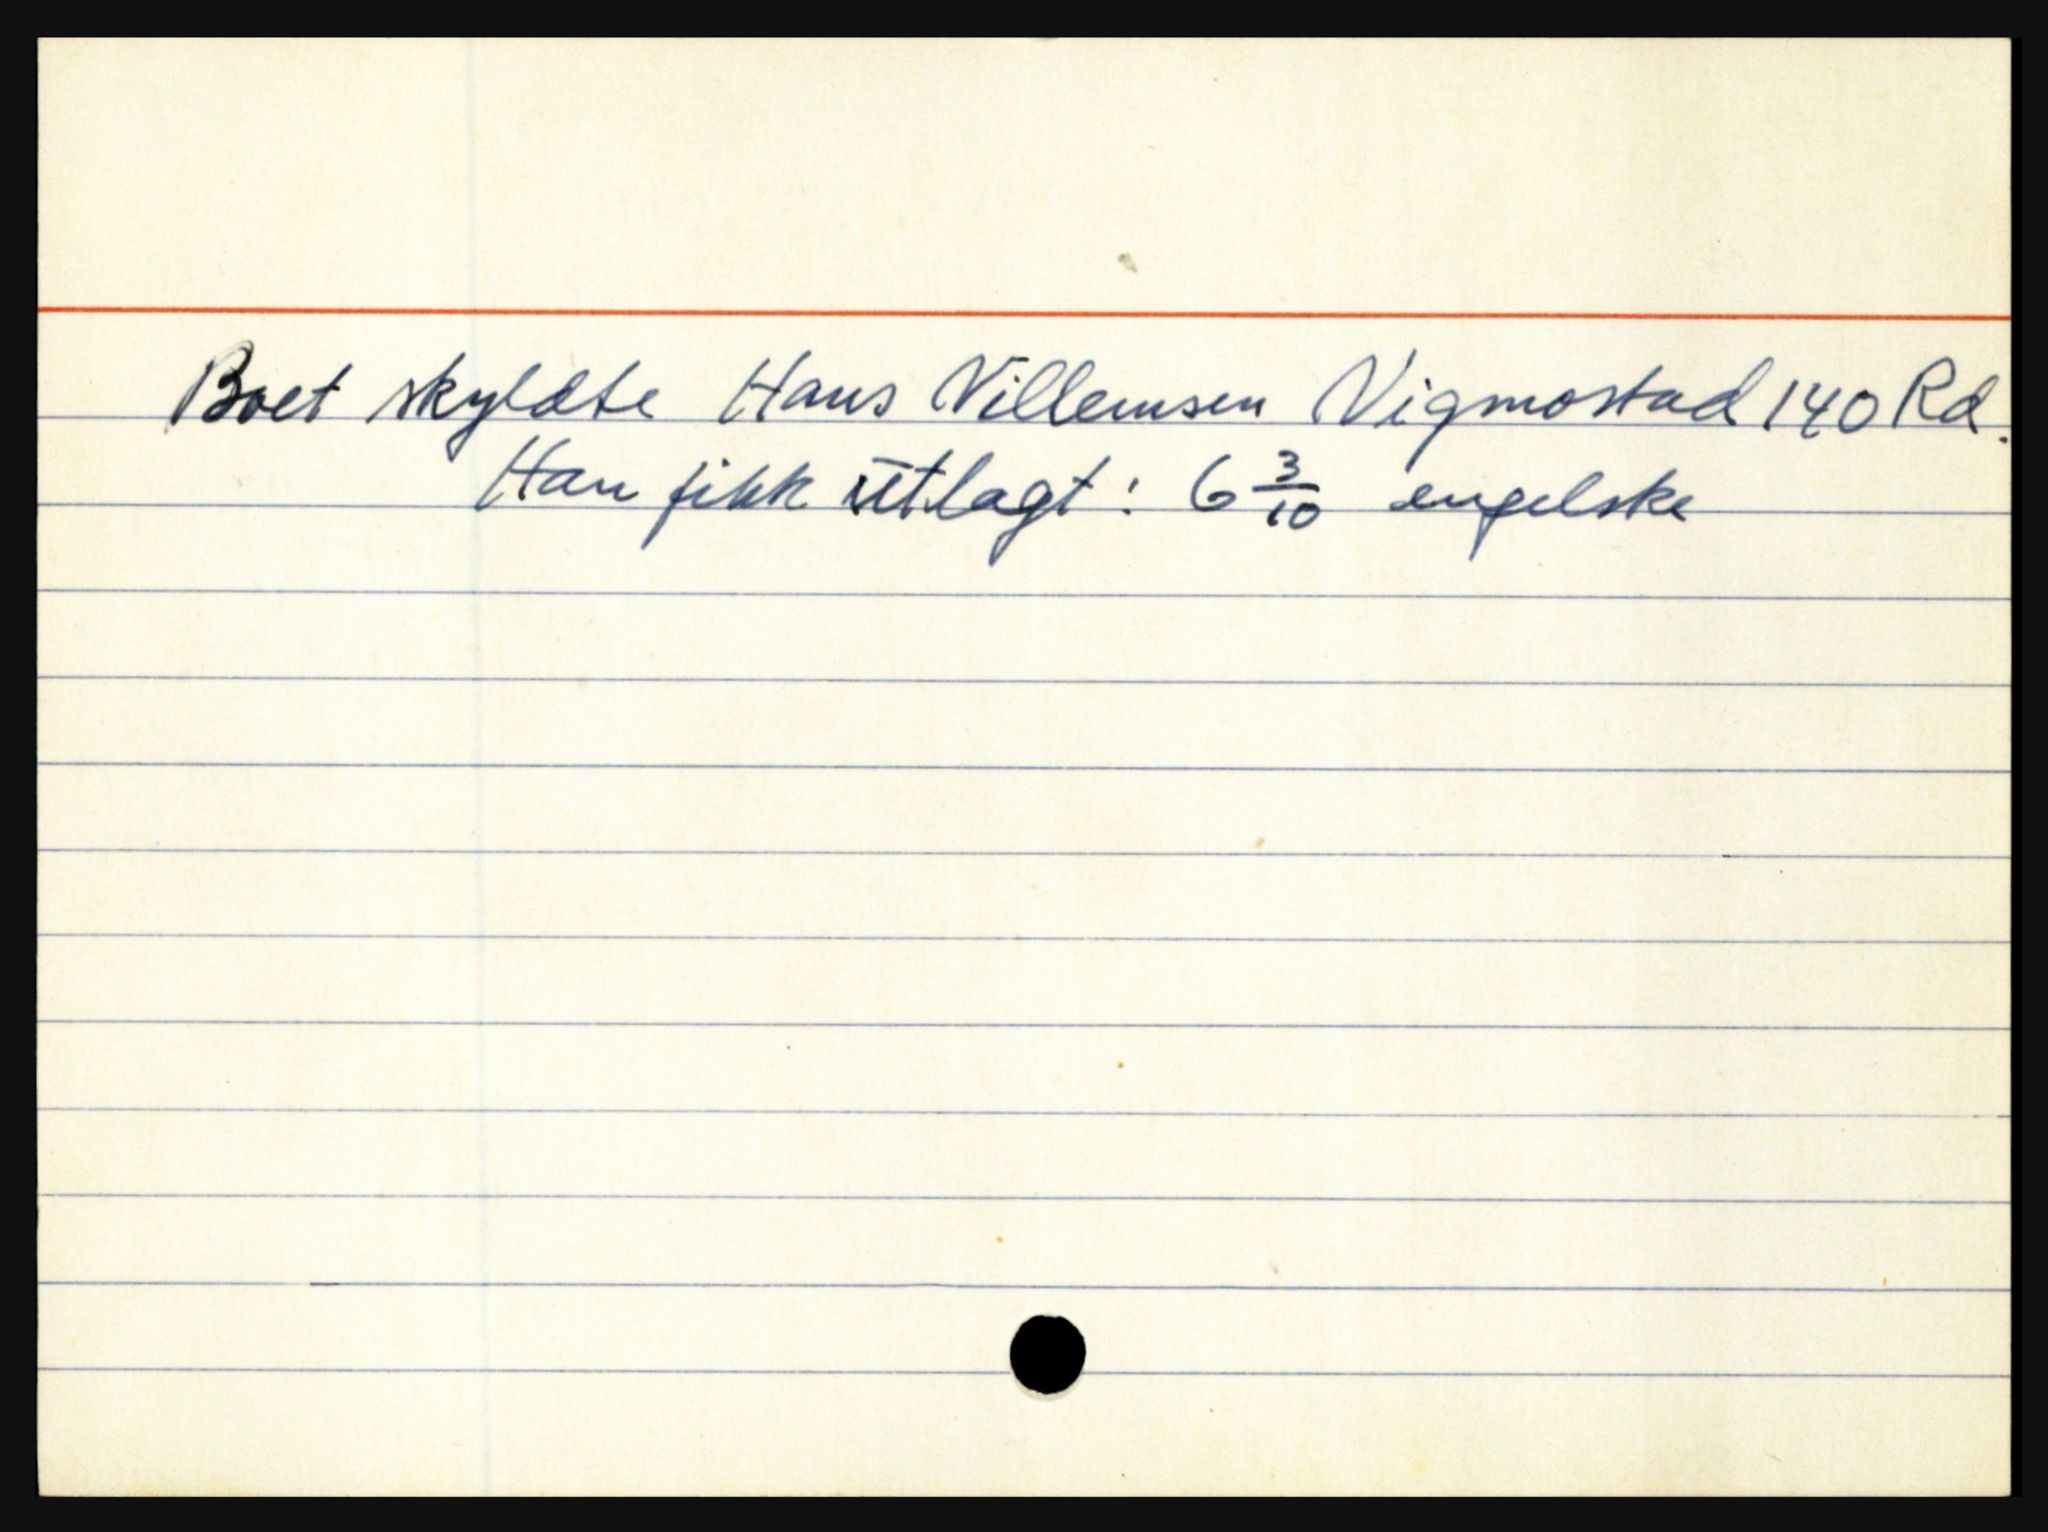 Boet skyldte Hans Villemsen Vigmostad 140 Rd.
Han fikk utlagt: 6 3/10 engelske